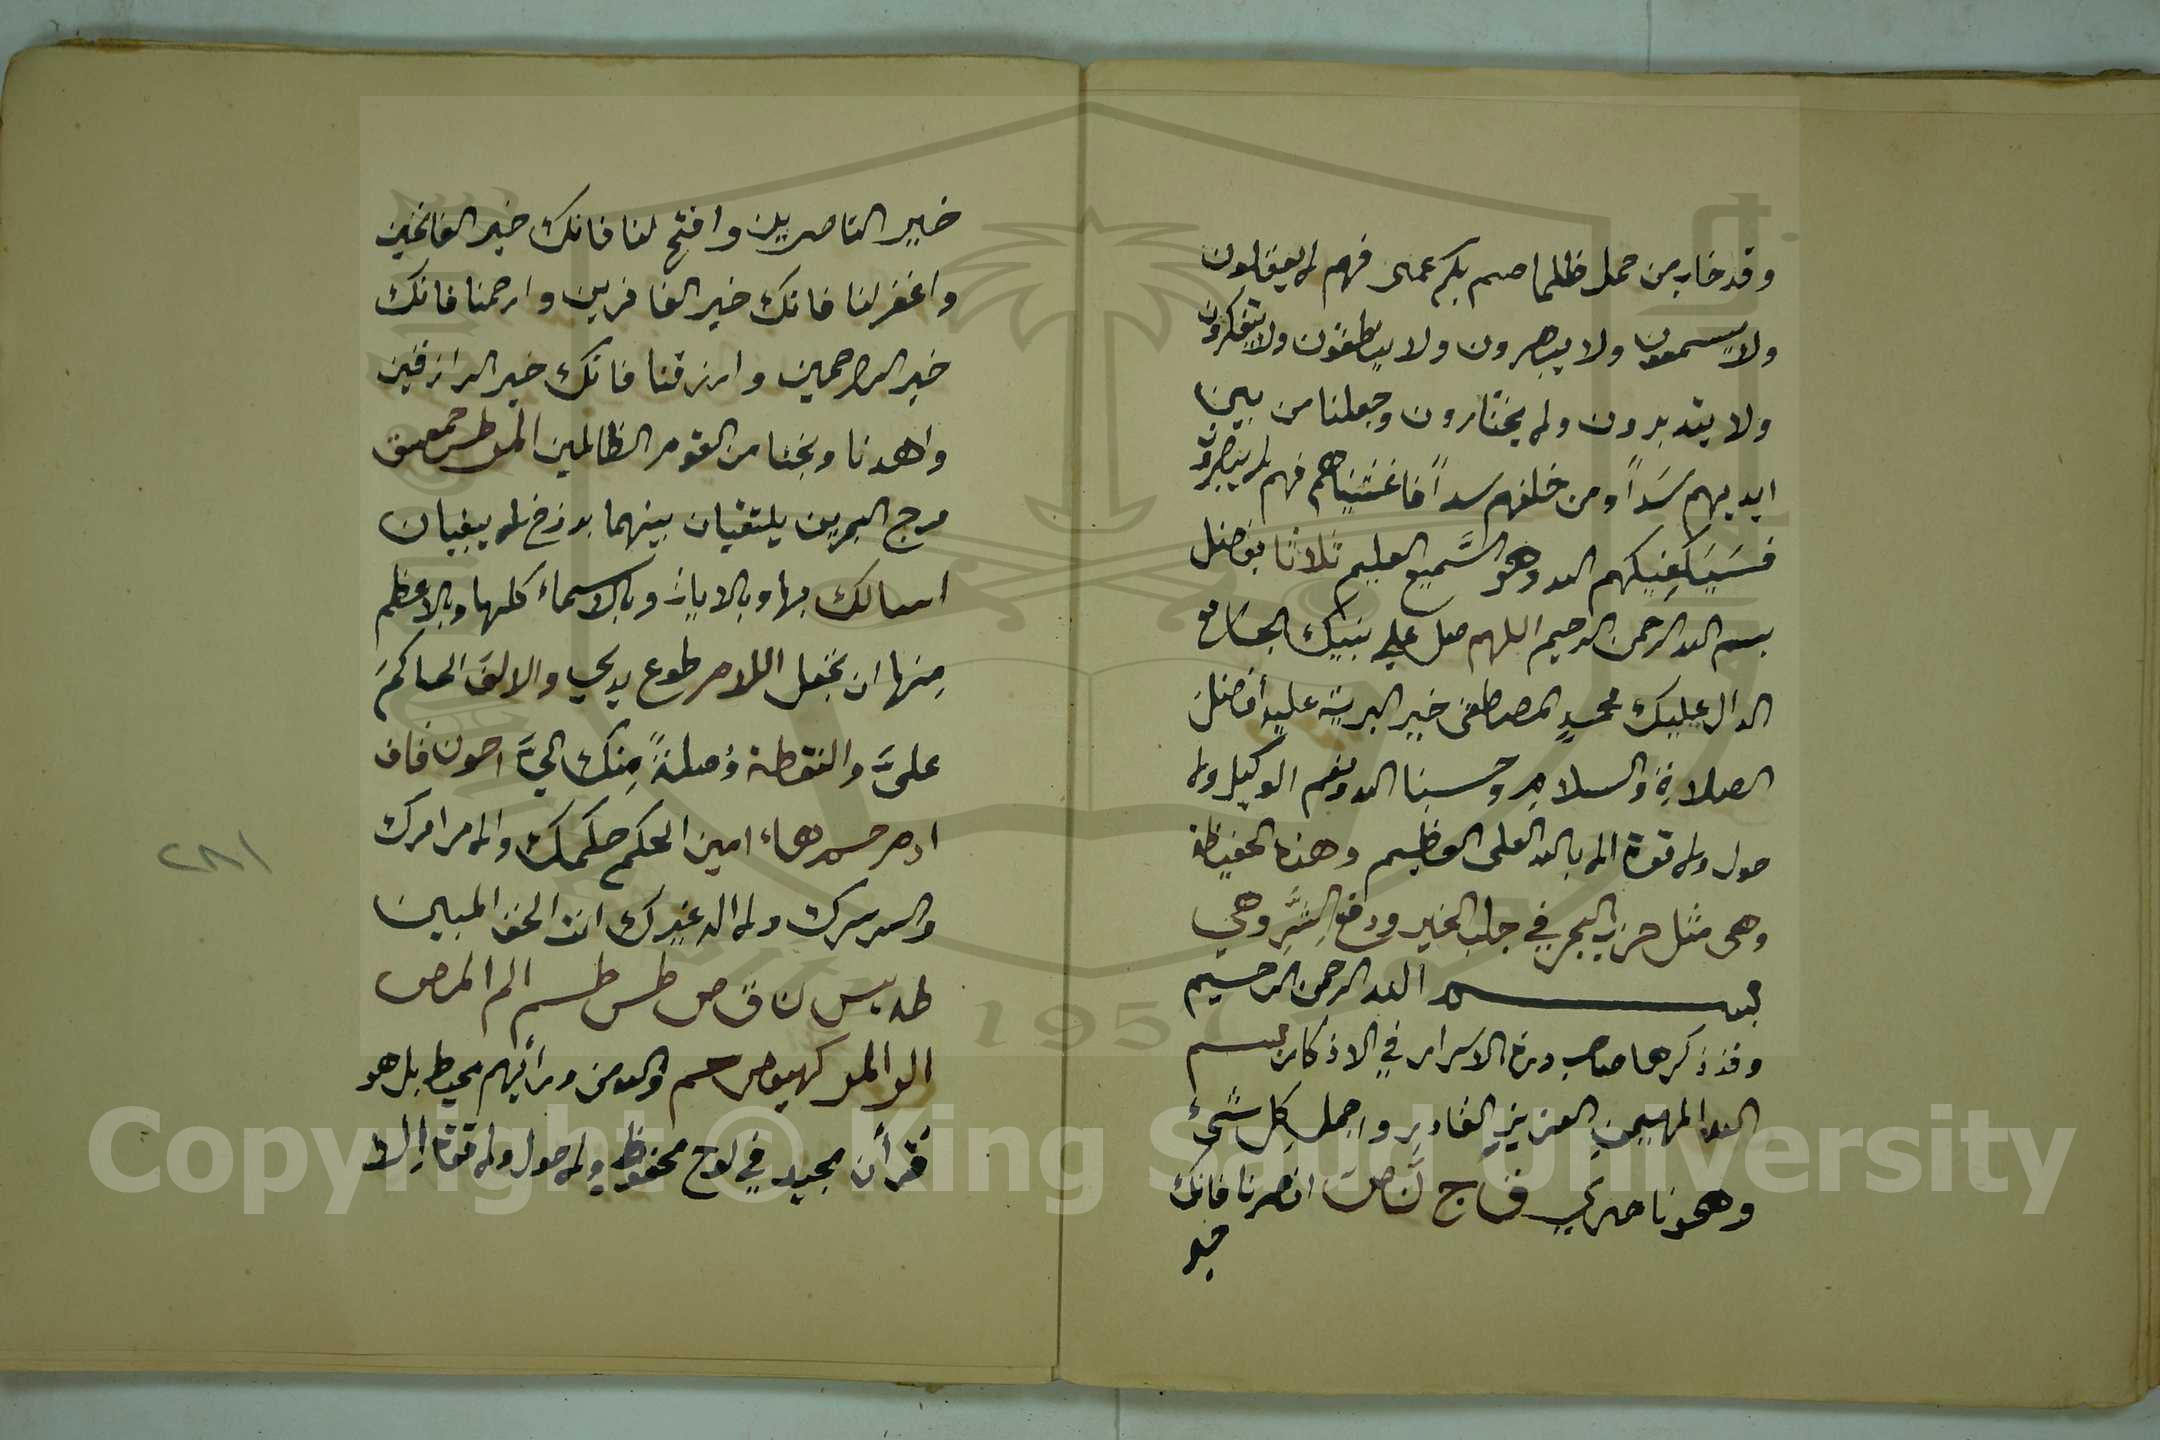 وقد خاب من حمل ظلما صم بكم عمى فهم لا يعقلون
ولا يسمعون ولا يبصرون ولا ينطقون ولا يتفكرون
ولا يتدبرون ولا يختارون وجعلنا من بين
ايديهم سَداً ومن خلفهم سداً فاغشيناهم فهم لا يبصرون
فسَيَكفِيكهم الله وهو السَّميع العليم ثلاثا بفضل
بسم الله الرحمن الرحيم اللهم صل على نبيك الجامع
الدال عليك محمدٍ المصطفى خير البرية عليه أفضل
الصلاة والسلام وحسبنا الله ونعم الوكيل ولا
حول ولا قوة الا بالله العلى العظيم وهذه الحفيظة
وهى مثل حزب البحر في جلب الخير ودفع الشَّرِ وهي
بسم الله الرحمن الرحيم
وقد ذكرها صاحب درة الاسرار في الاذكار بسم
الله المهيمن العزيز القادر واجمل كل شىء
وهو ناصري ف ج ن ص انصرنا فانك
خير
خير الناصرين وافتح لنا فانك خير الفاتحين
واغفر لنا فانك خير الغافرين وارحمنا فانك
خير الراحمين وارزقنا فانك خير الرازقين
واهدنا ونجنا من القوم الظالمين المر طس حمعسق
مرج البحرين يلتقيان بينهما برزخ لا يبغيان
اسالك بها وبالايات وبالاسماء كلها وبالاعظم
مِنها ان تجعل اللام طوع يدي والالف الحاكمَ
علىَّ والنقطة وُصلةً مِنك اليَّ احون قاف
ادم حم هاء امين الحكم حكمك والامر امرك
والسر سرك ولا اله غيرك انت الحق المبين
طه يس ن ق ص طس طسم الم المص
الر المر كهيعص حم والله من ورائهم محيط بل هو
قرأن مجيد في لوح محفوظ ولا حول ولا قوة إلا
٢٨١
Copyright © King Saud University
1957